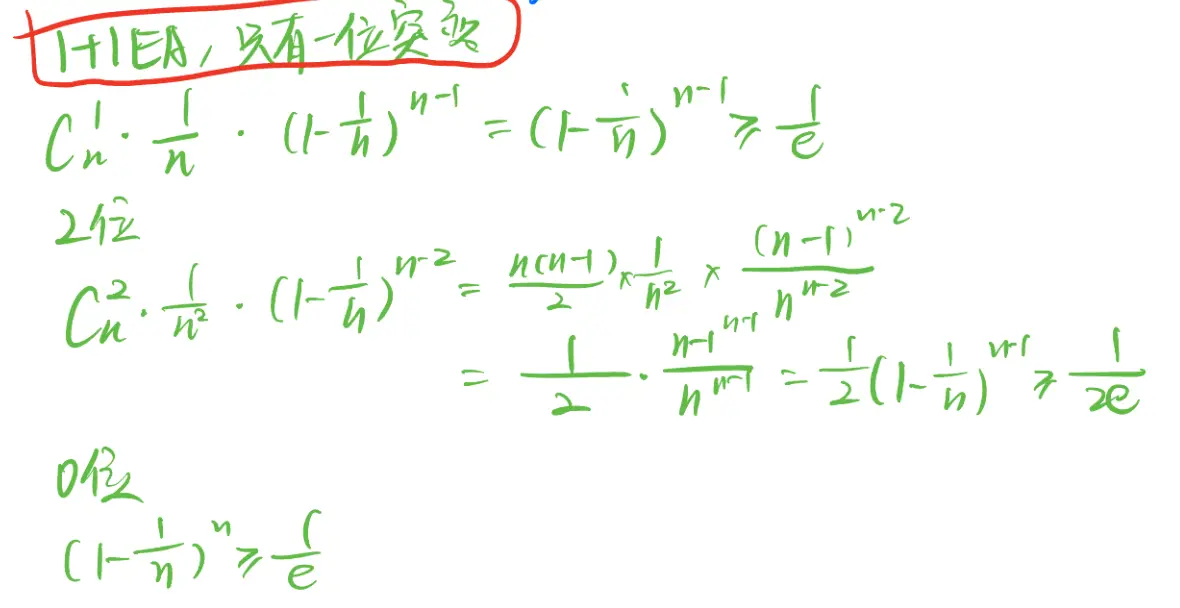 1+1EA，只有一位突变
C_n^1 · 1/n · (1-1/n)^{n-1} = (1-1/n)^{n-1} ≥ 1/e
2位
C_n^2 · 1/n² · (1-1/n)^{n-2} = n(n-1)/2 × 1/n² × (n-1)^{n-2}/n^{n-2}
= 1/2 · n-1^{n-1}/n^{n-1} = 1/2(1-1/n)^{n-1} ≥ 1/2e
0位
(1-1/n)^n ≥ 1/e